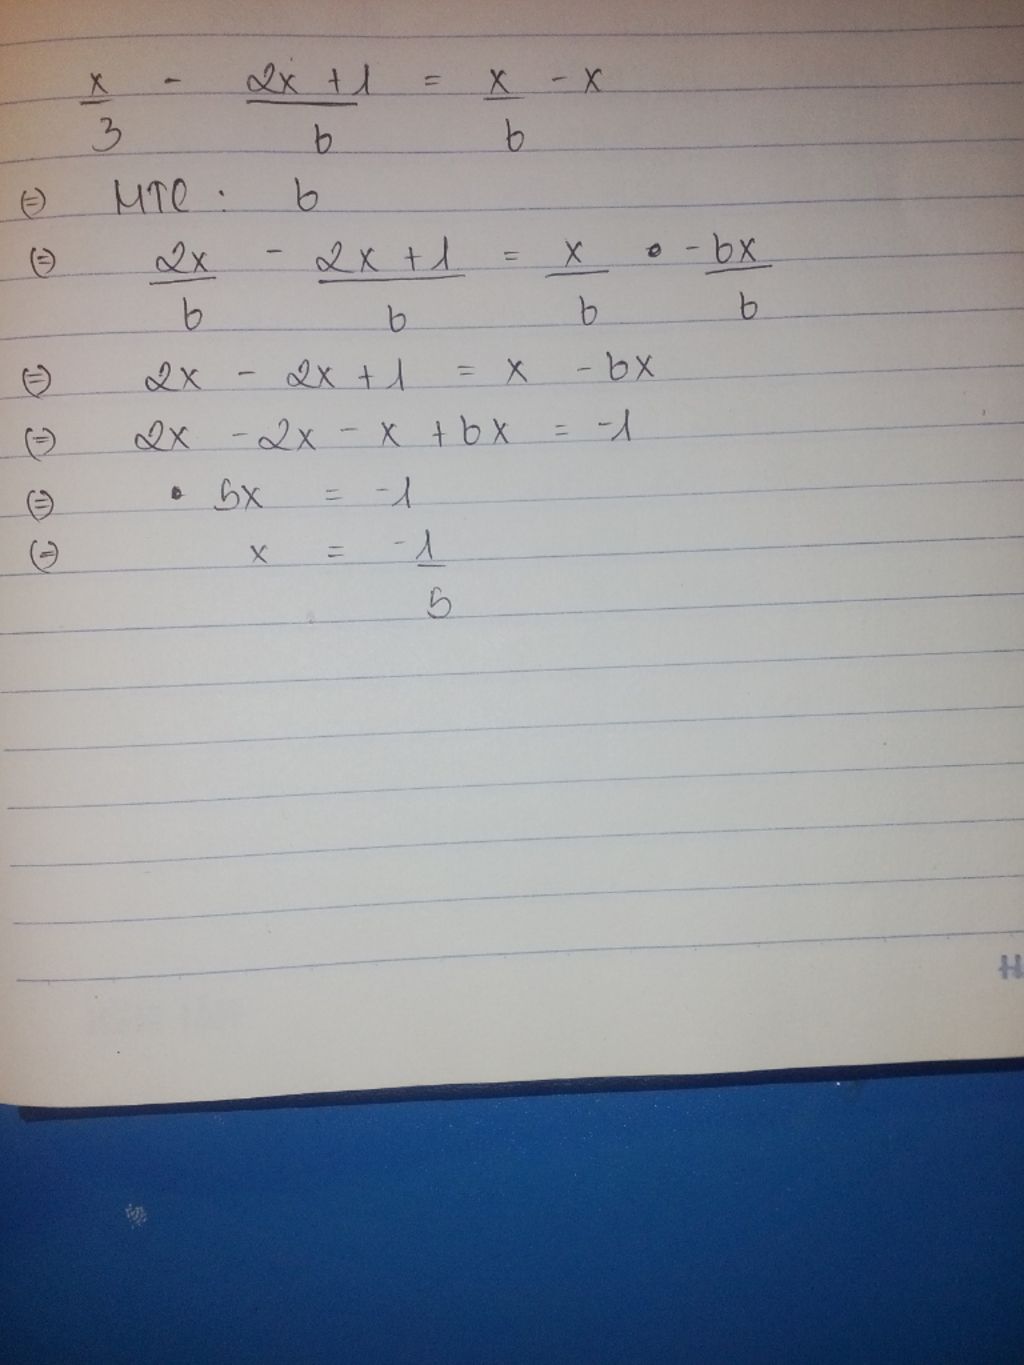 x/3 - (2x + 1)/6 = x/6 - x
(=) MTC : 6
(=) 2x/6 - (2x + 1)/6 = x/6 - 6x/6
(=) 2x - 2x + 1 = x - 6x
(=) 2x - 2x - x + 6x = -1
(=) 5x = -1
(=) x = -1/5